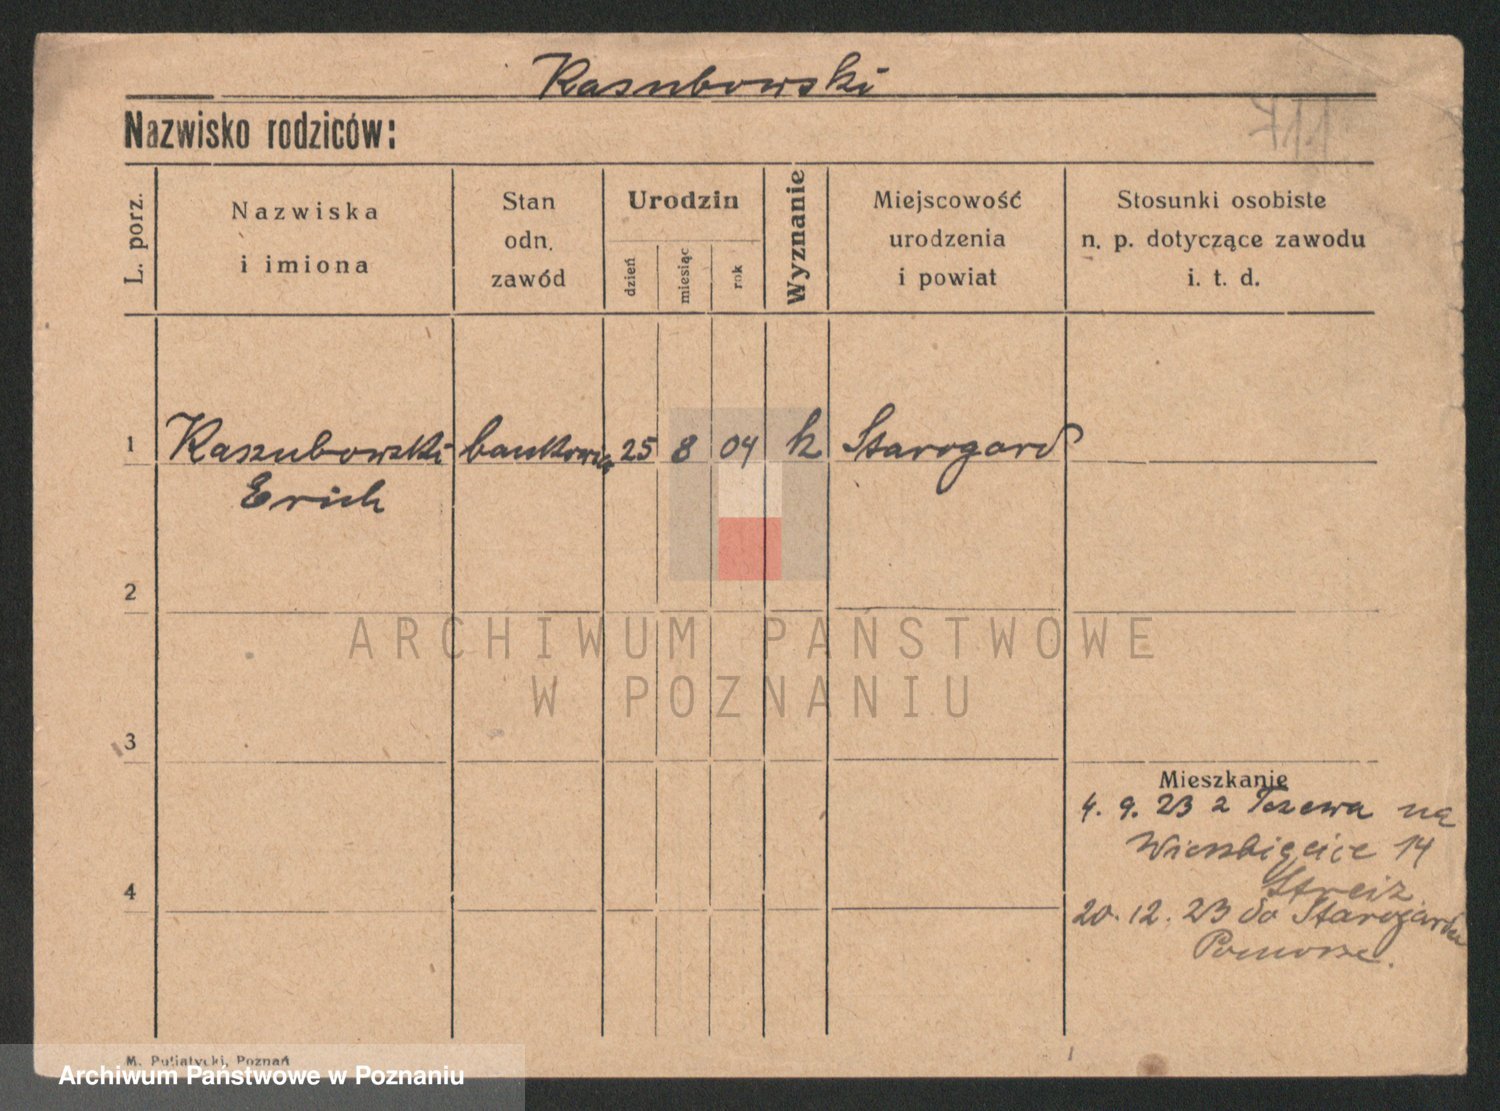 Kasubowski
Nazwisko rodziców:
L. porz.
Nazwiska
i imiona
Stan
odn.
zawód
Urodzin
dzień
miesiąc
rok
Wyznanie
Miejscowość
urodzenia
i powiat
Stosunki osobiste
n. p. dotyczące zawodu
i. t. d.
1 Kaszubowski bankowiec 25 8 04 k Starogard
Erich
2
3
4
Mieszkanie
4. 9. 23 z Tczewa na
Wierzbięcice 14
20. 12. 23 do Starogardu
Pomorze.
M. Putiatycki, Poznań
ARCHIWUM PAŃSTWOWE
W POZNANIU
Archiwum Państwowe w Poznaniu